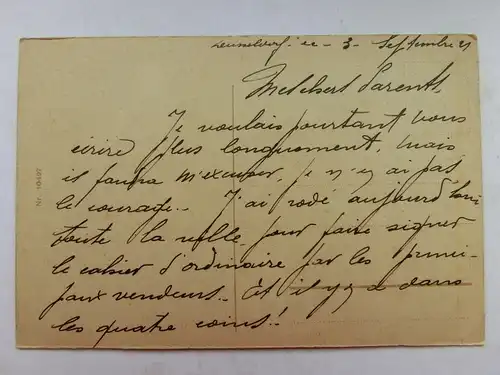 le 3 Septembre 21
Mes chers Parents,
Je voulais pourtant vous
écrire plus longuement, mais
il faudra m'excuser, je n'y ai pas
le courage.. J'ai rôdé aujourd'hui
toute la ville pour faire signer
le cahier d'ordinaire par les princi-
paux vendeurs.. Et il y a dans
les quatre coins!!
Nr. 10497